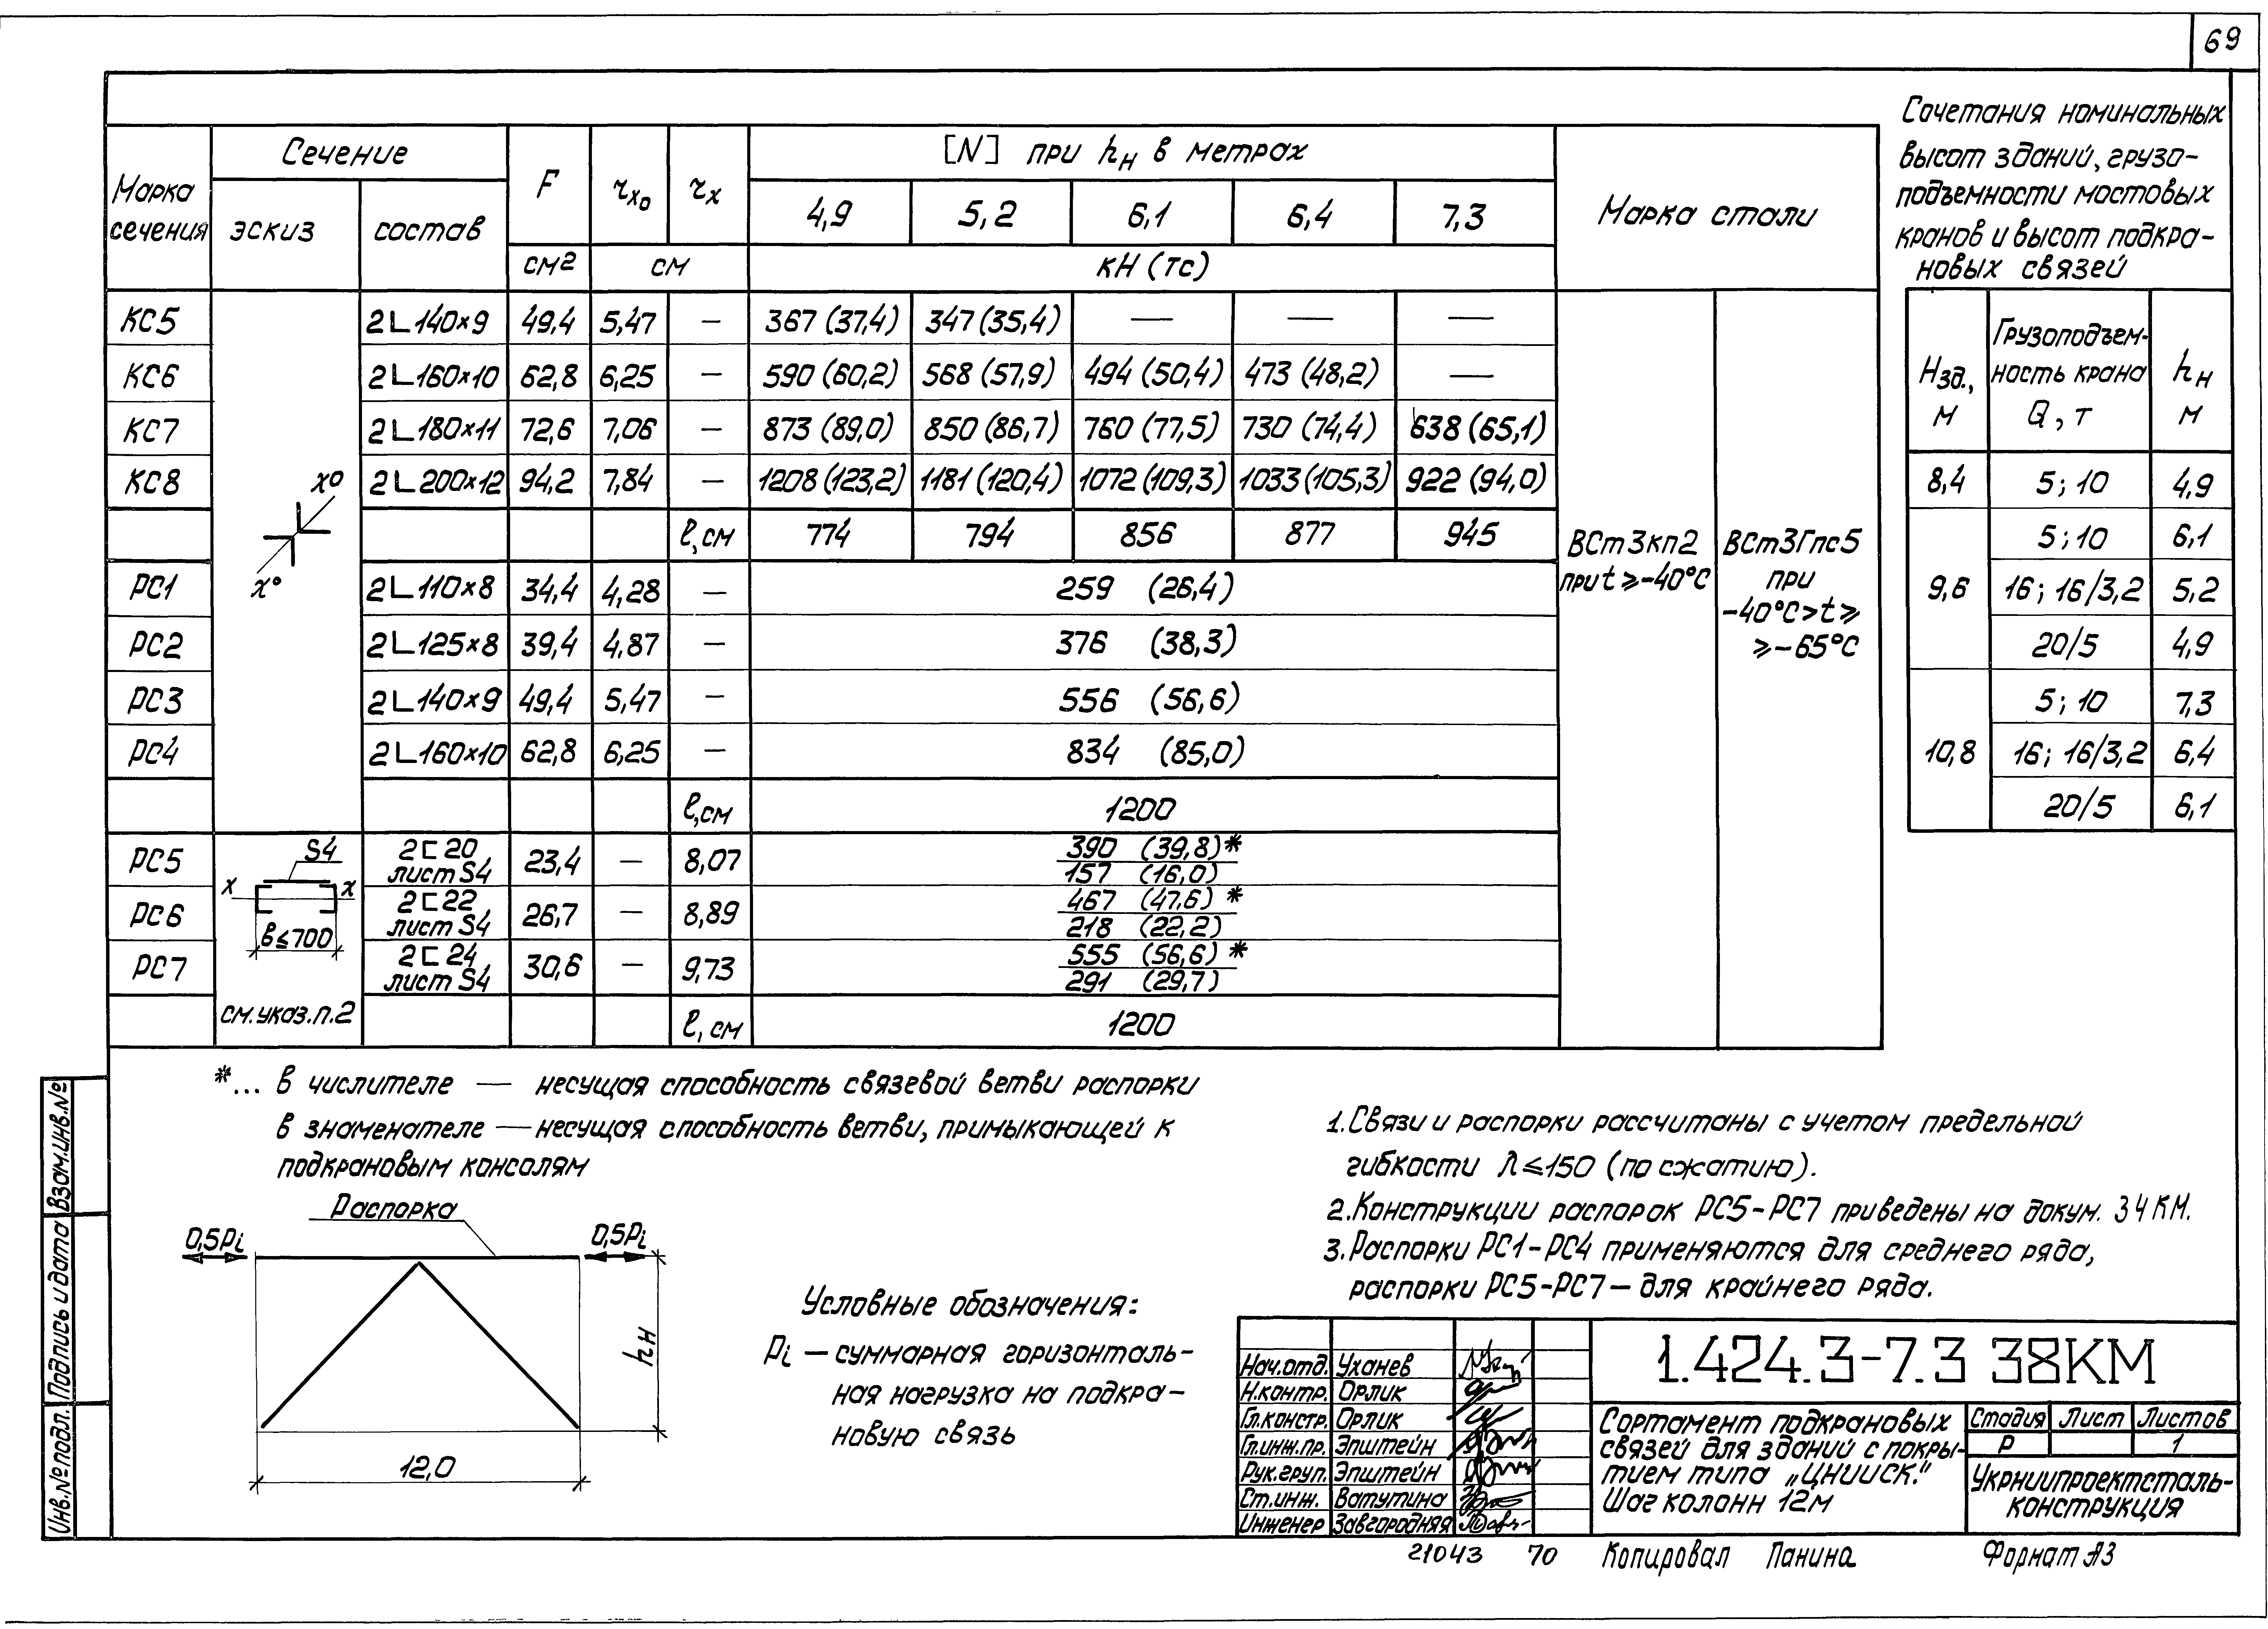 69
Марка сечения
Сечение
эскиз
состав
F
см²
ꚍx₀
ꚍx
см
[N] при hн в метрах
4,9 5,2 6,1 6,4 7,3
кН (тс)
Марка стали
КС5 2∟140×9 49,4 5,47 — 367 (37,4) 347 (35,4) — — —
КС6 2∟160×10 62,8 6,25 — 590 (60,2) 568 (57,9) 494 (50,4) 473 (48,2) —
КС7 2∟180×11 72,6 7,06 — 873 (89,0) 850 (86,7) 760 (77,5) 730 (74,4) 638 (65,1)
КС8 2∟200×12 94,2 7,84 — 1208 (123,2) 1181 (120,4) 1072 (109,3) 1033 (105,3) 922 (94,0)
ℓ,см 774 794 856 877 945
x°
x°
РС1 2∟110×8 34,4 4,28 — 259 (26,4)
РС2 2∟125×8 39,4 4,87 — 376 (38,3)
РС3 2∟140×9 49,4 5,47 — 556 (56,6)
РС4 2∟160×10 62,8 6,25 — 834 (85,0)
ℓ,см 1200
РС5 2⊏20 лист S4 23,4 — 8,07 390 (39,8)* 157 (16,0)
РС6 2⊏22 лист S4 26,7 — 8,89 467 (47,6)* 218 (22,2)
РС7 2⊏24 лист S4 30,6 — 9,73 555 (56,6)* 291 (29,7)
ℓ, см 1200
S4
x x
в≤700
см.указ.п.2
ВСт3кп2
при t ⩾-40°С
ВСт3Гпс5
при
-40°С>t⩾
⩾-65°С
Сочетания номинальных
высот зданий, грузо-
подъемности мостовых
кранов и высот подкра-
новых связей
Нзд., м
Грузоподъем-
ность крана
Q, т
hн
м
8,4 5; 10 4,9
9,6 5; 10 6,1
16; 16/3,2 5,2
20/5 4,9
10,8 5; 10 7,3
16; 16/3,2 6,4
20/5 6,1
*... в числителе — несущая способность связевой ветви распорки
в знаменателе — несущая способность ветви, примыкающей к
подкрановым консолям
Распорка
0,5Pi
0,5Pi
hн
12,0
Условные обозначения:
Pi — суммарная горизонталь-
ная нагрузка на подкра-
новую связь
1. Связи и распорки рассчитаны с учетом предельной
гибкости λ⩽150 (по сжатию).
2. Конструкции распорок РС5-РС7 приведены на докум. 34КМ.
3. Распорки РС1-РС4 применяются для среднего ряда,
распорки РС5-РС7 — для крайнего ряда.
Нач.отд. Уханев
Н.контр. Орлик
Гл.констр. Орлик
Гл.инж.пр. Эпштейн
Рук.груп. Эпштейн
Ст.инж. Ватутина
Инженер Завгородняя
1.424.3-7.3 38КМ
Сортамент подкрановых
связей для зданий с покры-
тием типа „ЦНИИСК."
Шаг колонн 12м
Стадия Лист Листов
Р 1
Укрниипроектсталь-
конструкция
21043 70 Копировал Панина Формат А3
Взам.инв.№
Подпись и дата
Инв.№ подл.